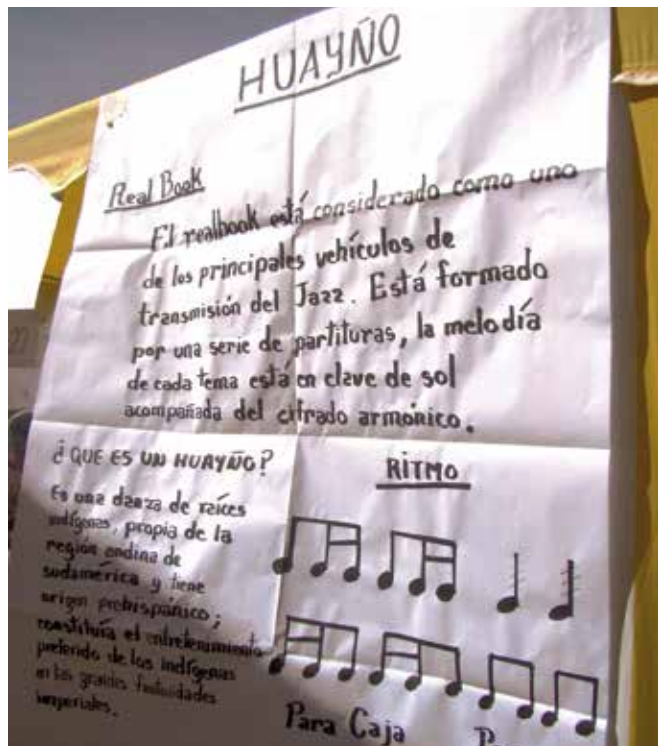 HUAYÑO
Real Book
El realbook está considerado como uno
de los principales vehículos de
transmisión del Jazz. Está formado
por una serie de partituras, la melodía
de cada tema está en clave de sol
acompañada del cifrado armónico.
¿QUE ES UN HUAYÑO?
Es una danza de raíces
indígenas, propia de la
región andina de
sudamérica y tiene
origen prehispánico;
constituía el entretenimiento
preferido de los indígenas
en las grandes festividades
imperiales.
RITMO
Para Caja